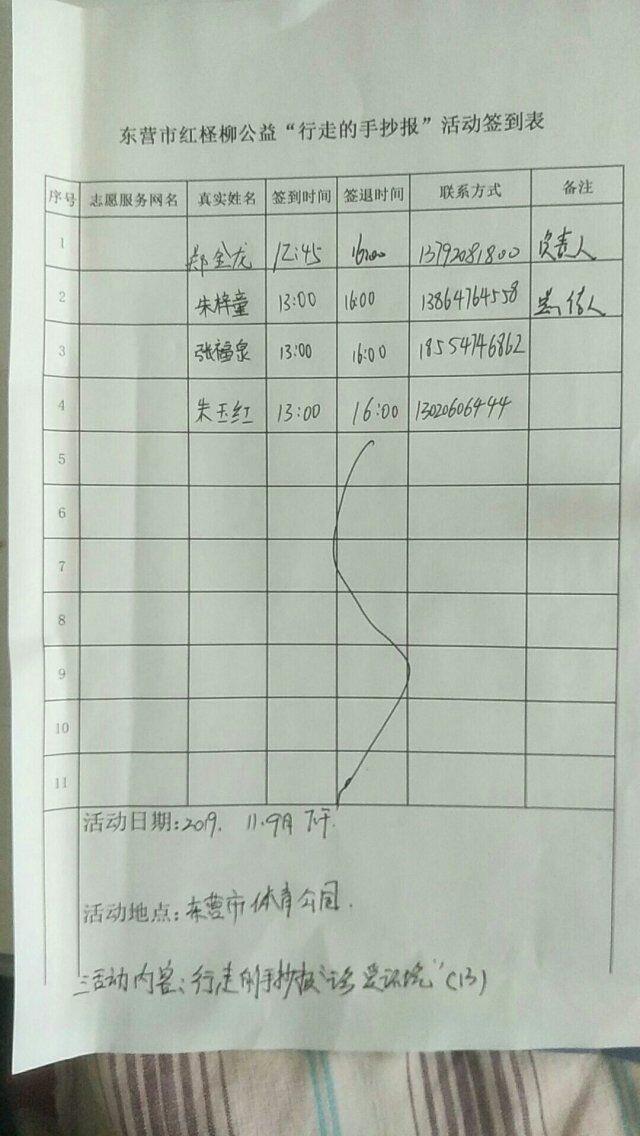 东营市红柽柳公益“行走的手抄报”活动签到表
序号 志愿服务网名 真实姓名 签到时间 签退时间 联系方式 备注
1 郑金龙 12:45 16:00 13792081800 负责人
2 朱梓童 13:00 16:00 13864764558
3 张福泉 13:00 16:00 18554746862
4 朱玉红 13:00 16:00 13020606444
5
6
7
8
9
10
11
活动日期:2019. 11.9月 下午.
活动地点:东营市体育公园.
活动内容:行走的手抄报“ 爱环境”(13)